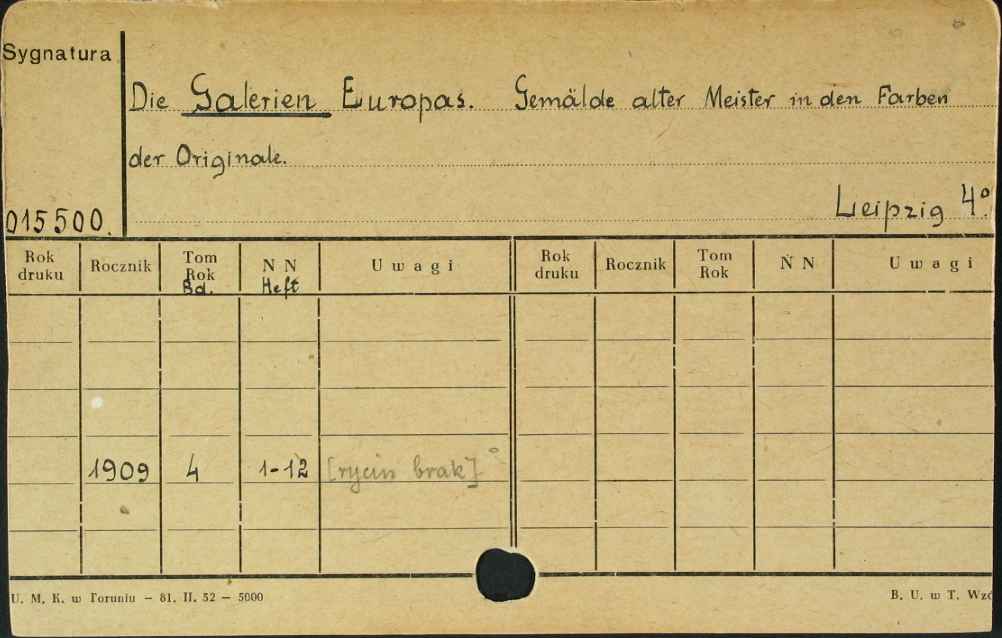 Sygnatura
Die Galerien Europas. Gemälde alter Meister in den Farben
der Originale.
Leipzig 4°.
015500.
Rok druku Rocznik Tom Rok Bd. N N Heft Uwagi Rok druku Rocznik Tom Rok N N Uwagi
1909 4 1-12 [rycin brak]
U. M. K. w Toruniu – 81. II. 52 – 5000
B. U. w T. Wzó